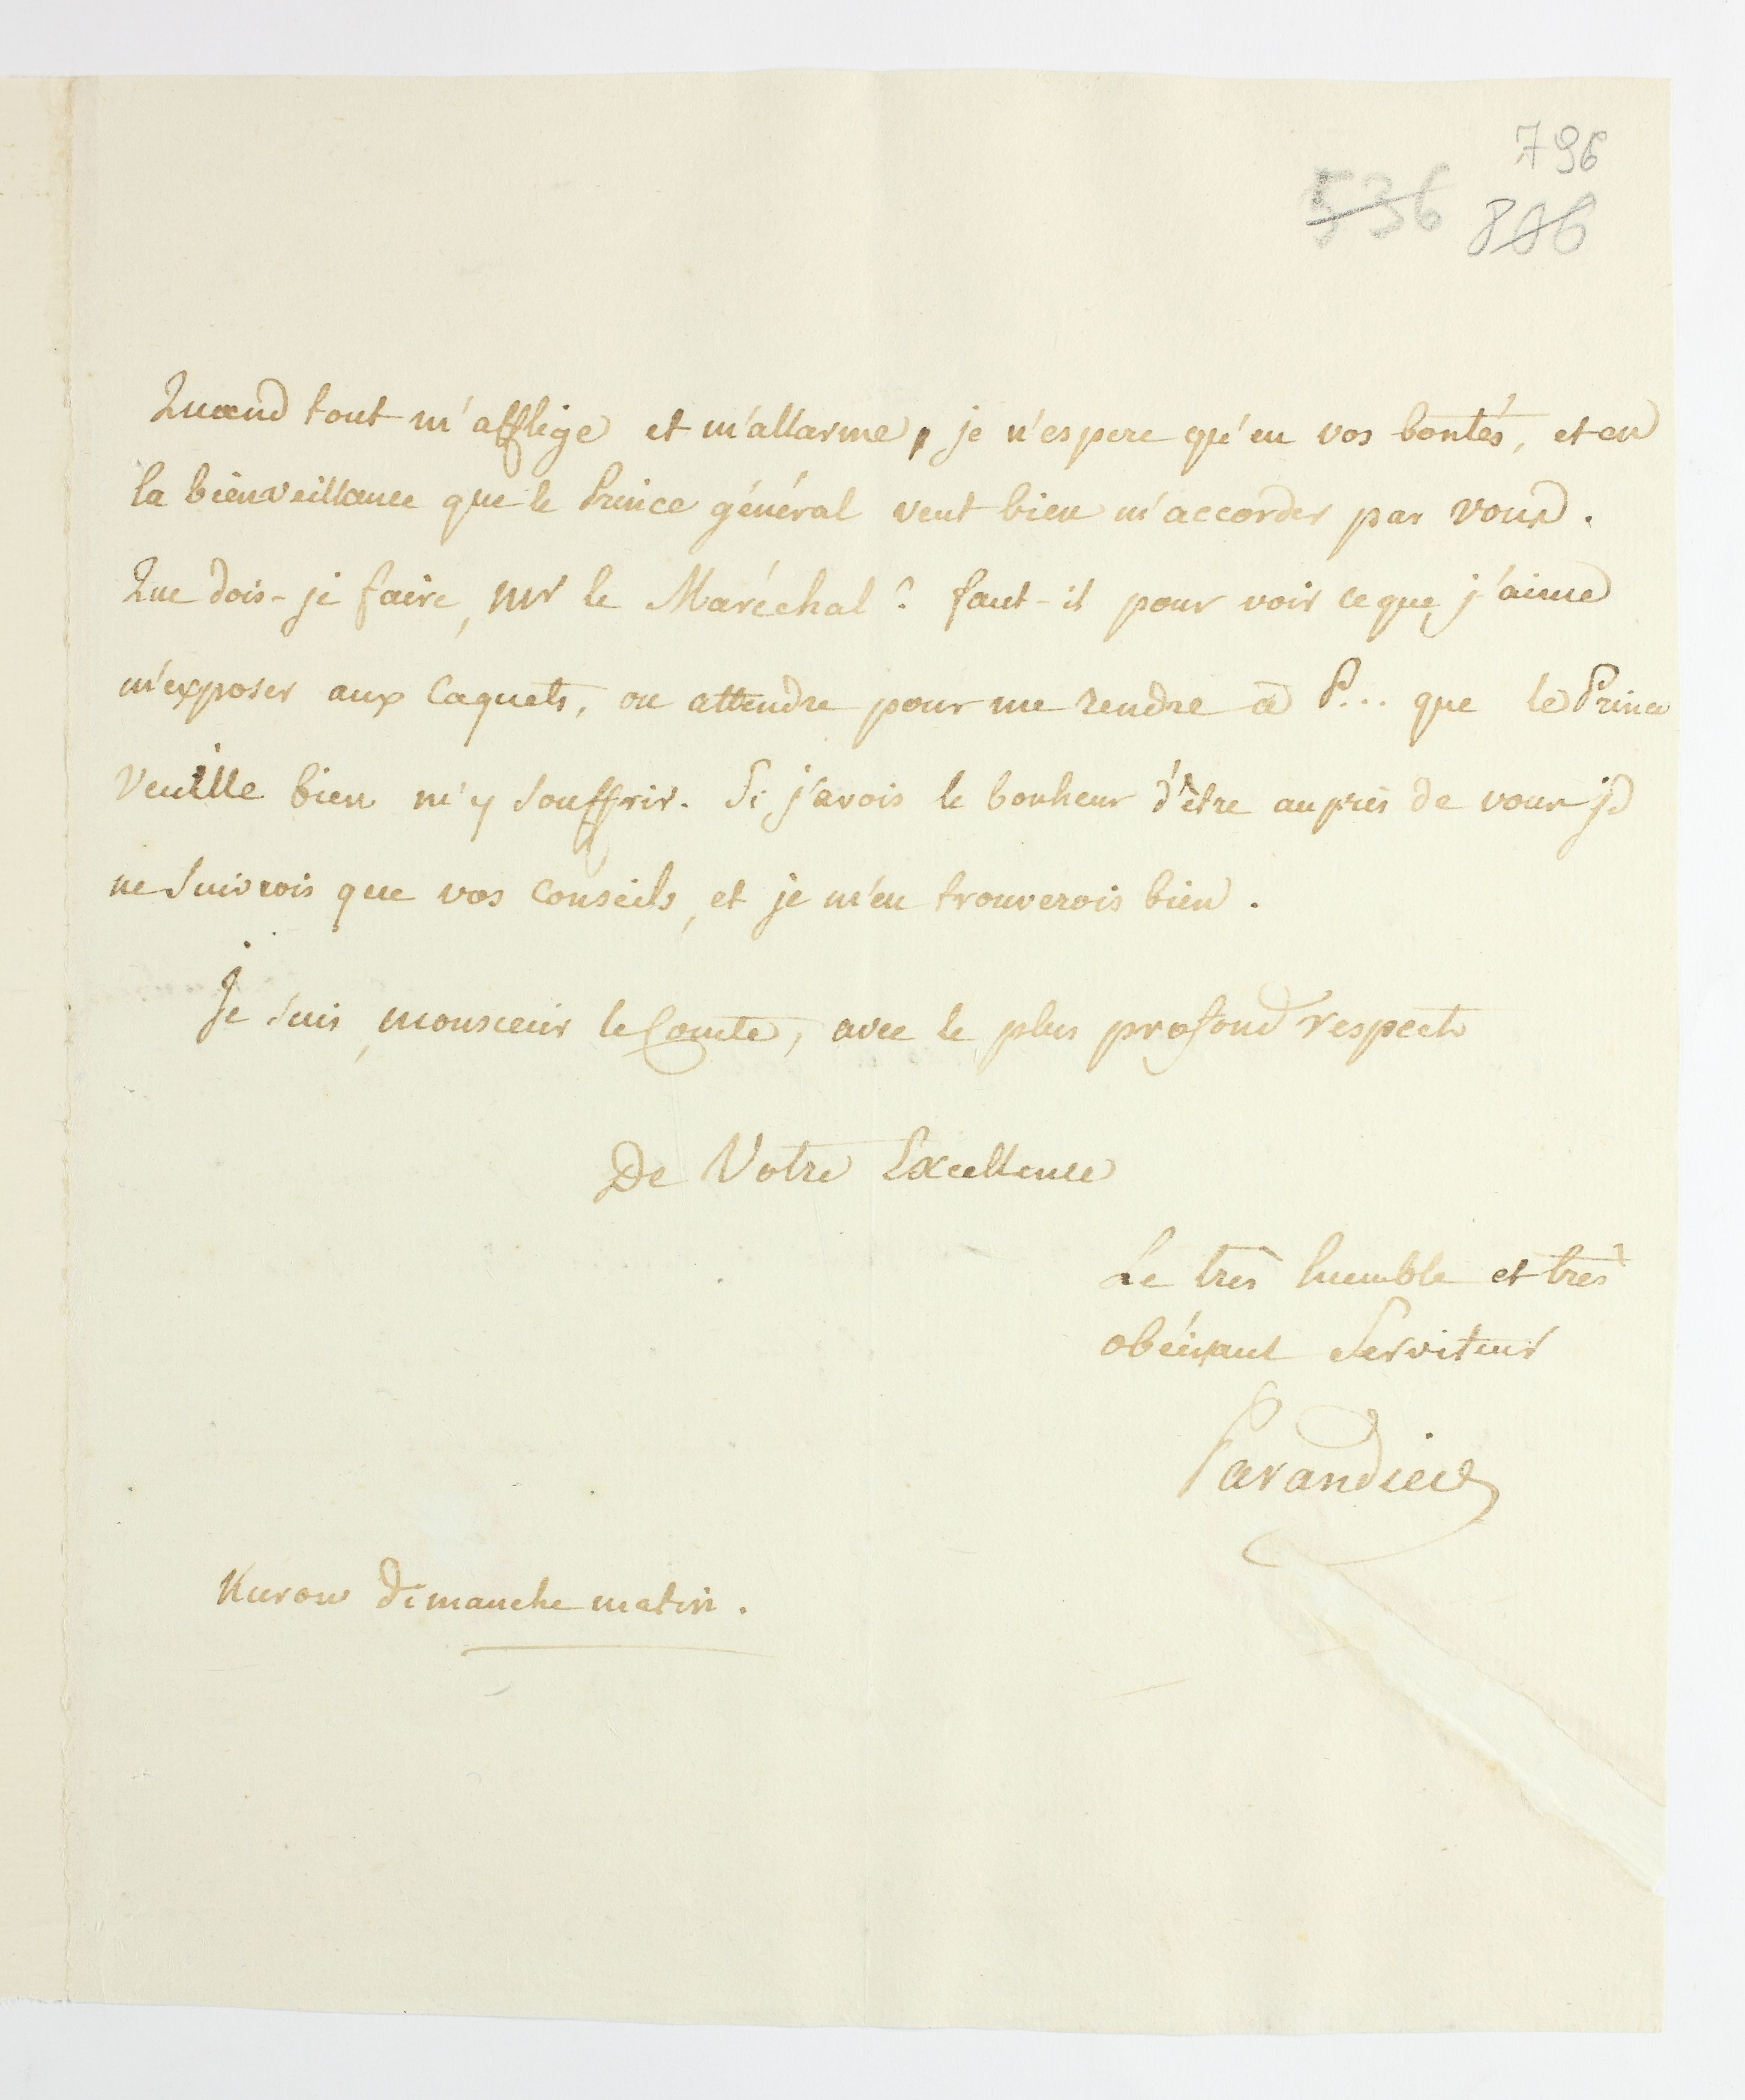 796
536 806
Quand tout m'afflige et m'allarme, je n'espere qu'en vos bontés, et en
la bienveillance que le Prince général veut bien m'accorder par vous.
Que dois-je faire, Mr le Maréchal? faut-il pour voir ce que j'aime
m'exposer aux caquets, ou attendre pour me rendre à P... que le Prince
veuille bien m'y souffrir. Si j'avois le bonheur d'être auprès de vous je
ne suivrois que vos conseils, et je m'en trouverois bien.
Je suis, monsieur le Comte, avec le plus profond respect
De Votre Excellence
Le très humble et très
obéissant Serviteur
Parandier
Kurow dimanche matin.